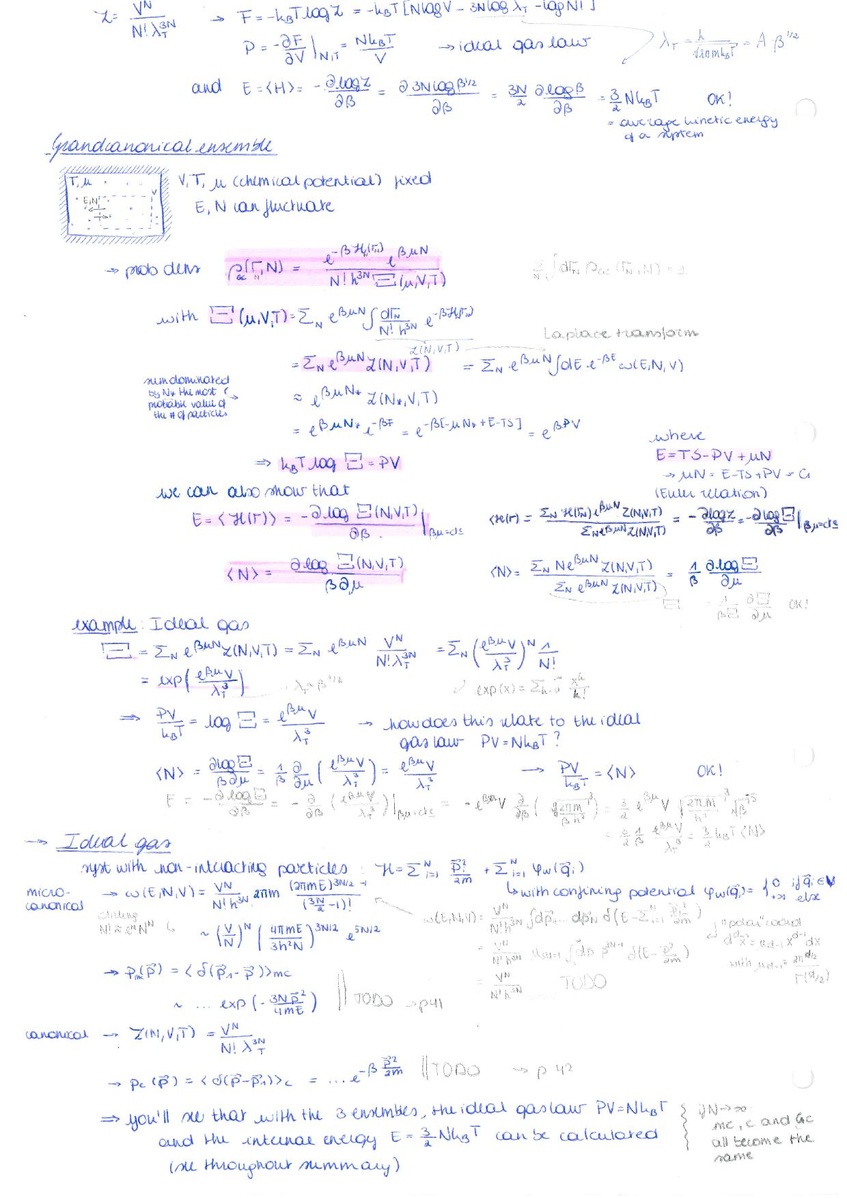 Z = V^N / (N! λ_T^{3N}) → F = -k_BT log Z = -k_BT [N log V - 3N log λ_T - log N!]
P = -∂F/∂V |_{N,T} = Nk_BT / V → ideal gas law
λ_T = h / √(2πmk_BT) = A β^{1/2}
and E = <H> = -∂log Z / ∂β = ∂ 3N log β^{1/2} / ∂β = 3N/2 ∂log β / ∂β = 3/2 Nk_BT OK!
= average kinetic energy
of a system
Grandcanonical ensemble
T, μ
E, N
V
V, T, μ (chemical potential) fixed
E, N can fluctuate
→ prob dens ρ_{GC}(Γ, N) = e^{-βH_N(Γ_N)} e^{βμN} / (N! h^{3N} Ξ(μ,V,T))
Σ_N ∫dΓ_N ρ_{GC}(Γ_N, N) = 1
with Ξ(μ,V,T) = Σ_N e^{βμN} ∫ dΓ_N / (N! h^{3N}) e^{-βH(Γ_N)}
Z(N,V,T)
Laplace transform
= Σ_N e^{βμN} Z(N,V,T) = Σ_N e^{βμN} ∫dE e^{-βE} ω(E,N,V)
sum dominated
by N* the most
probable value of
the # of particles
≈ e^{βμN*} Z(N*,V,T)
= e^{βμN*} e^{-βF} = e^{-β[-μN* + E - TS]} = e^{βPV}
⇒ k_BT log Ξ = PV
where
E = TS - PV + μN
→ μN = E - TS + PV = G
(Euler relation)
we can also show that
E = <H(Γ)> = -∂log Ξ(N,V,T) / ∂β |_{βμ=cte}
<H(Γ)> = Σ_N H(Γ_N) e^{βμN} Z(N,V,T) / Σ_N e^{βμN} Z(N,V,T) = -∂log Z / ∂β = -∂log Ξ / ∂β |_{βμ=cte}
<N> = ∂log Ξ(N,V,T) / β∂μ
<N> = Σ_N N e^{βμN} Z(N,V,T) / Σ_N e^{βμN} Z(N,V,T) = 1/β ∂log Ξ / ∂μ
Ξ = 1/(βΞ) ∂Ξ/∂μ OK!
example: Ideal gas
Ξ = Σ_N e^{βμN} Z(N,V,T) = Σ_N e^{βμN} V^N / (N! λ_T^{3N}) = Σ_N (e^{βμ}V / λ_T^3)^N 1/N!
= exp(e^{βμ}V / λ_T^3)
λ ~ β^{1/2}
exp(x) = Σ_{k=0}^∞ x^k / k!
⇒ PV / k_BT = log Ξ = e^{βμ}V / λ_T^3 → how does this relate to the ideal
gas law PV = Nk_BT?
<N> = ∂log Ξ / β∂μ = 1/β ∂/∂μ (e^{βμ}V / λ_T^3) = e^{βμ}V / λ_T^3 → PV / k_BT = <N> OK!
E = -∂log Ξ / ∂β = -∂/∂β (e^{βμ}V / λ_T^3) |_{βμ=cte} = -e^{βμ}V ∂/∂β (√(2πm / βh²)^3) = 3/2 e^{βμ}V √(2πm / h²)^3 √β^{-5}
= 3/2 1/β e^{βμ}V / λ_T^3 = 3/2 k_BT <N>
→ Ideal gas
syst with non-interacting particles : H = Σ_{i=1}^N p_i² / 2m + Σ_{i=1}^N φ_w(q_i)
↳ with confining potential φ_w(q_i) = { 0 if q_i ∈ V
+∞ else
micro-
canonical
→ ω(E,N,V) = V^N / (N! h^{3N}) 2πm (2πmE)^{3N/2 - 1} / (3N/2 - 1)!
N! ≈ e^{-N} N^N
~ (V/N)^N (4πmE / 3h²N)^{3N/2} e^{5N/2}
ω(E,N,V) = V^N / (N! h^{3N}) ∫dp_1 ... dp_N δ(E - Σ_{i=1}^N p_i² / 2m)
= V^N / (N! h^{3N}) ∫dp p^{3N-1} δ(E - p² / 2m)
= V^N / (N! h^{3N}) TODO
"polar" coord
d^dx = x^{d-1} dx
with = 2π^{d/2} / Γ(d/2)
→ P_{mc}(p) = <δ(p_1 - p)>_{mc}
~ ... exp(-3Np² / 4mE) || TODO → p41
canonical → Z(N,V,T) = V^N / (N! λ_T^{3N})
→ p_c(p) = <δ(p - p_1)>_c = ... e^{-β p²/2m} || TODO → p 42
⇒ you'll see that with the 3 ensembles, the ideal gas law PV = Nk_BT
and the internal energy E = 3/2 Nk_BT can be calculated
(see throughout summary)
if N → ∞
mc, c and GC
all become the
same